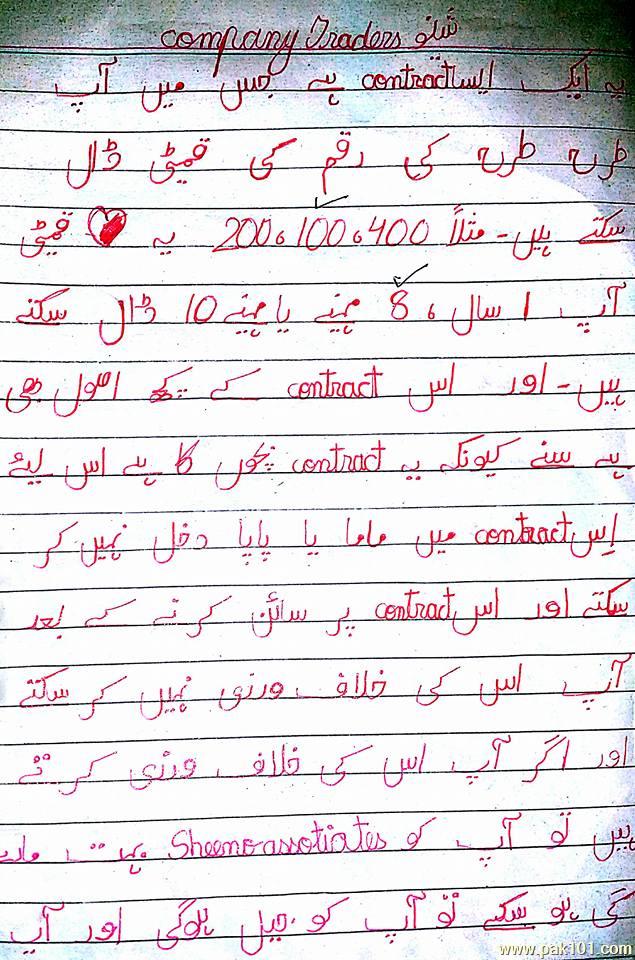 شنو company Traders
یہ ایک ایسا contract ہے جس میں آپ
طرح طرح کی رقم کی قمیٹی ڈال
سکتے ہیں - مثلاً 400،100،200 یہ قمیٹی
آپ 1 سال ، 8 مہنے یا مہنے 10 ڈال سکتے
ہیں - اور اس contract کے پکھ اصول بھی
ہے سنے کیونکہ یہ contract بچوں کا ہے اس لیئے
اِس contract میں ماما یا پاپا دخل نہیں کر
سکتے اور اس contract پر سائن کرنے کے بعد
آپ اس کی خلاف ورزی نہیں کر سکتے
اور اگر آپ اس کی خلاف ورزی کرتے
ہیں تو آپ کو Sheeno assotiates بہت مارے
گی ہو سکے تو آپ کو جیل ہوگی اور آپ
www.pak101.com